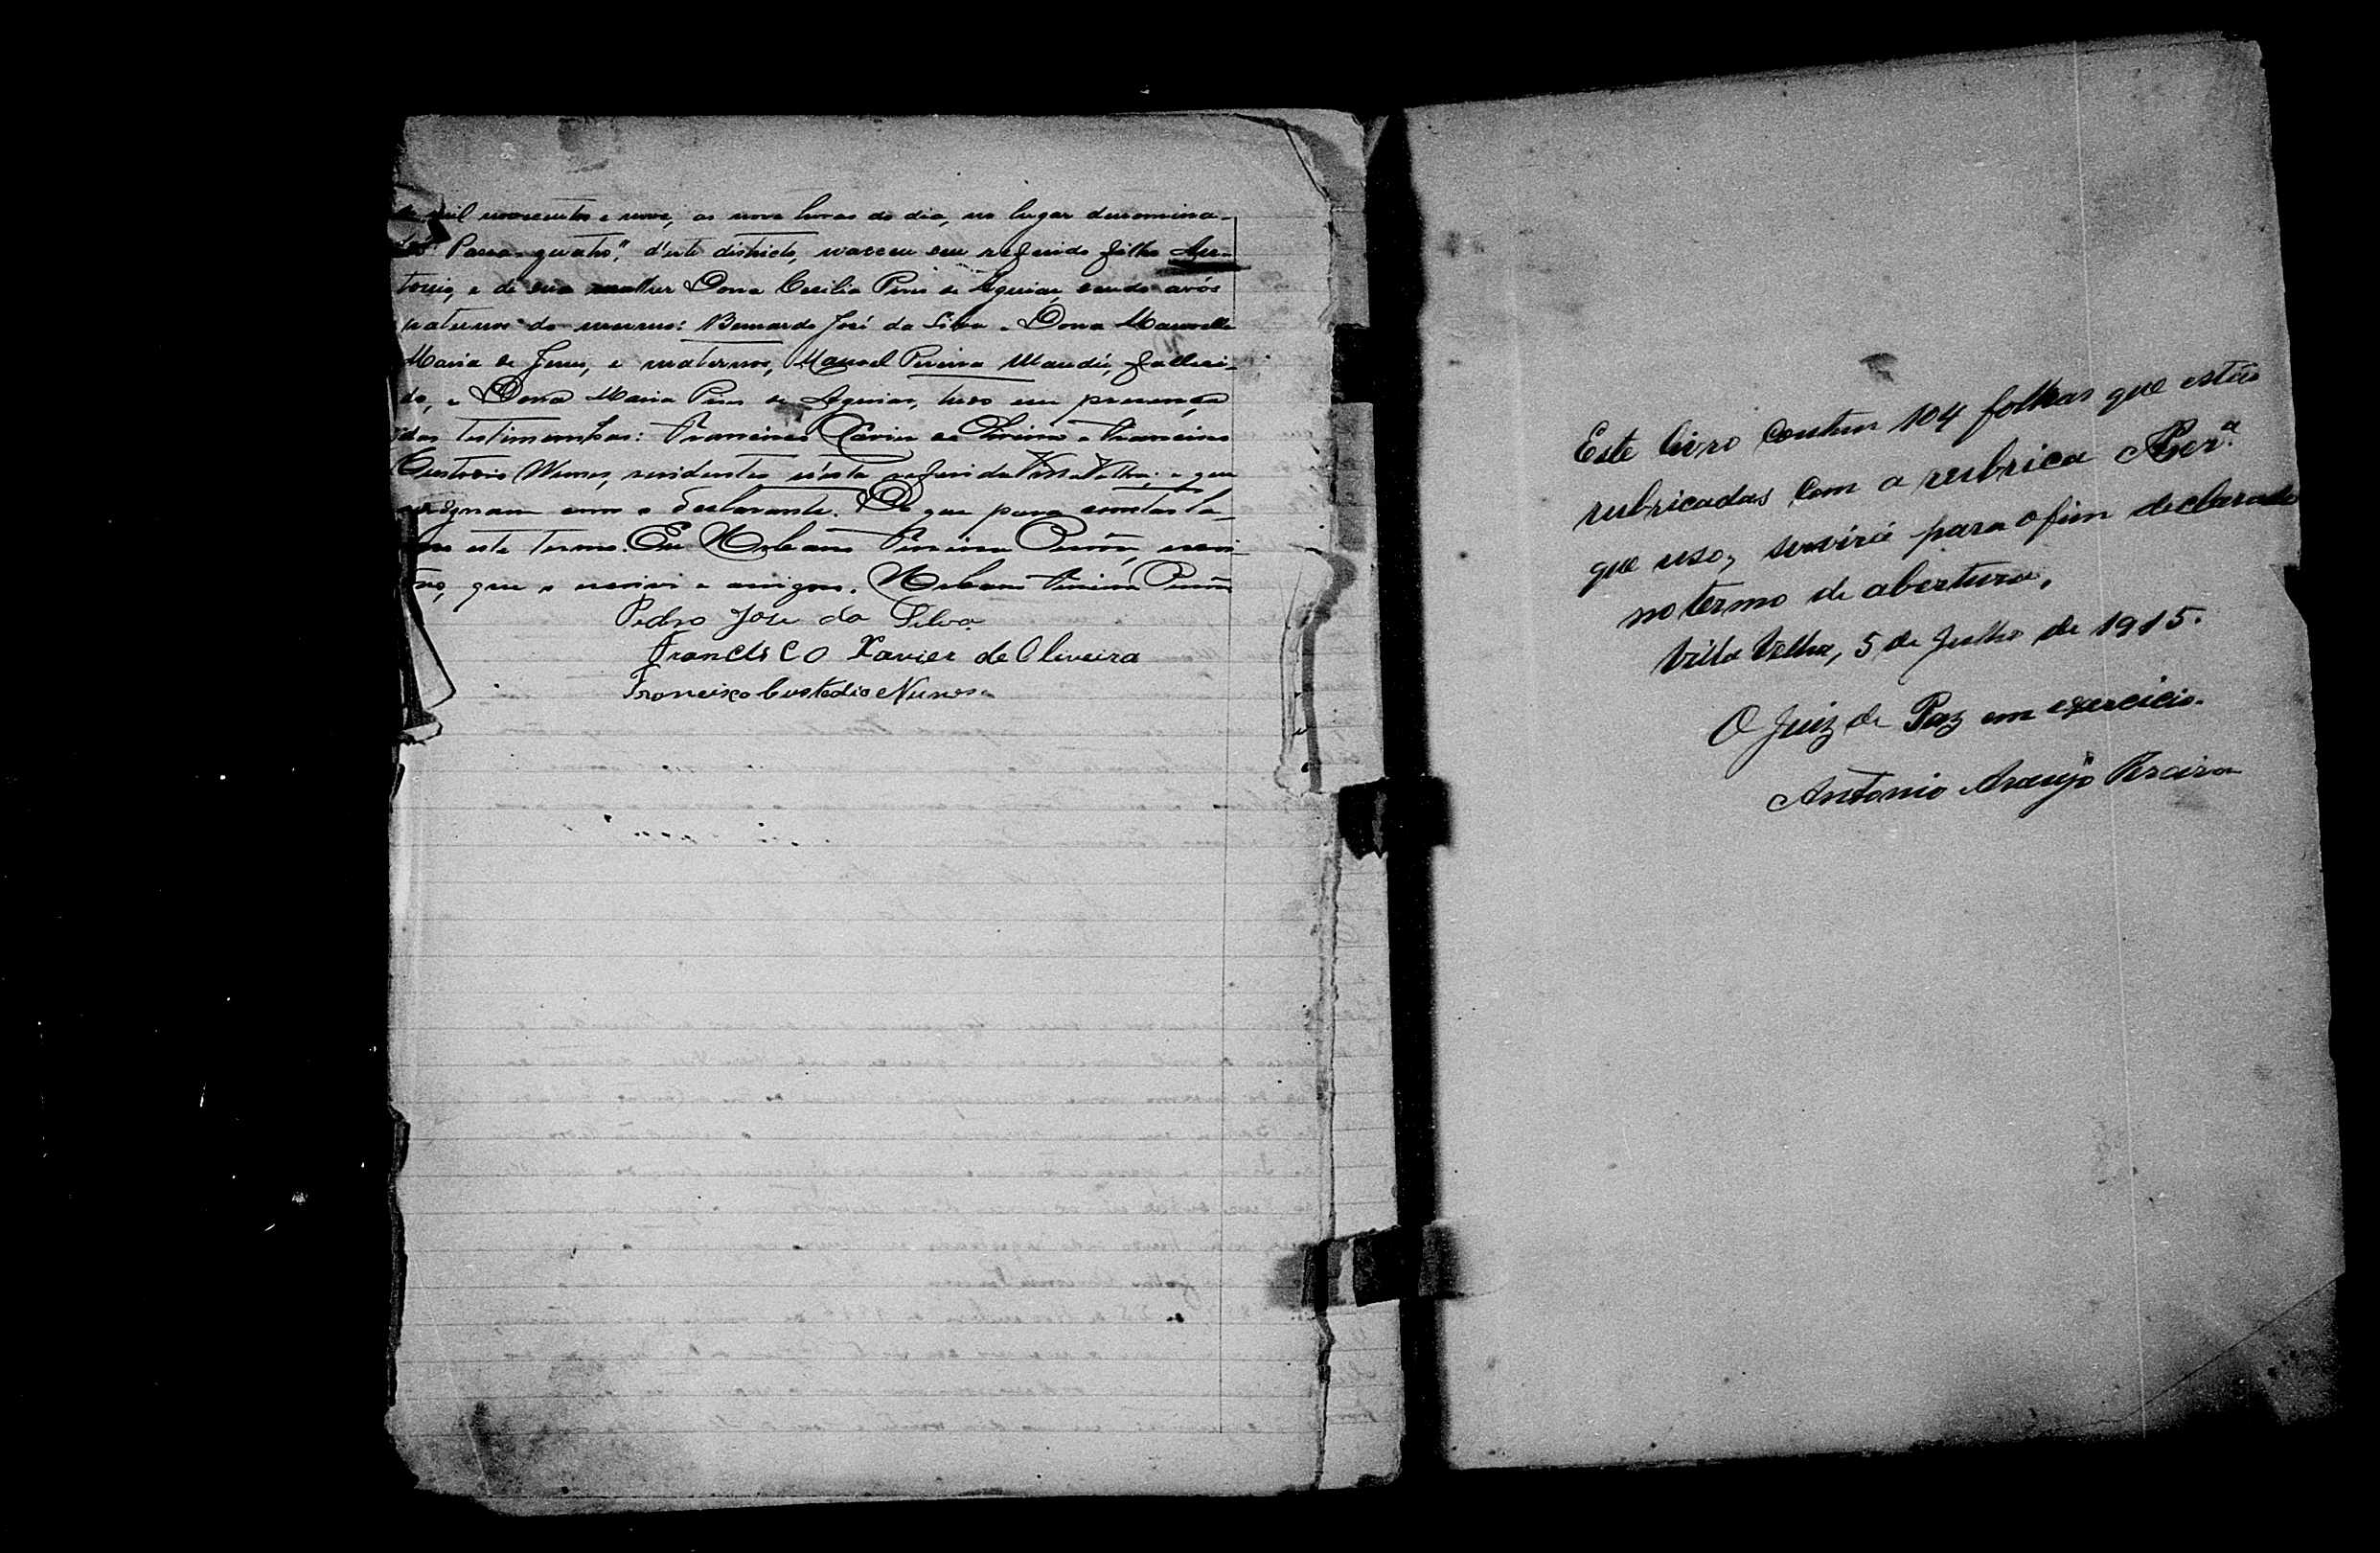 mil novecentos e nove, as nove horas do dia, no lugar denomina-
"Passa-quatro", d'este districto, nasceu seu referido filho An-
tonio, e de sua mulher Dona Cecilia Pires de Aguiar, sendo avós
paternos do mesmo: Bernardo José da Silva e Dona Manoella
Maria de Jesus, e maternos, Manoel Pereira Mandú, falleci-
do, e Dona Maria Pires de Aguiar, tudo em presença
das testimunhas: Francisco Xavier de Oliveira e Francisco
Custodio Nunes, residentes n'esta referida Villa Velha, e que
assignam com o declarante. De que para constar la-
este termo. Eu Urbano Pereira escri-
que o escrevi e assigno. Urbano
Pedro José da Silva
Francisco Xavier de Oliveira
Francisco Custodio Nunes.
Este livro contem 104 folhas que estão
rubricadas com a rubrica APerª.
que uso, servirá para o fim declarado
no termo de abertura.
Villa Velha, 5 de Julho de 1915.
O Juiz de Paz em exercicio.
Antonio Araujo Pereira